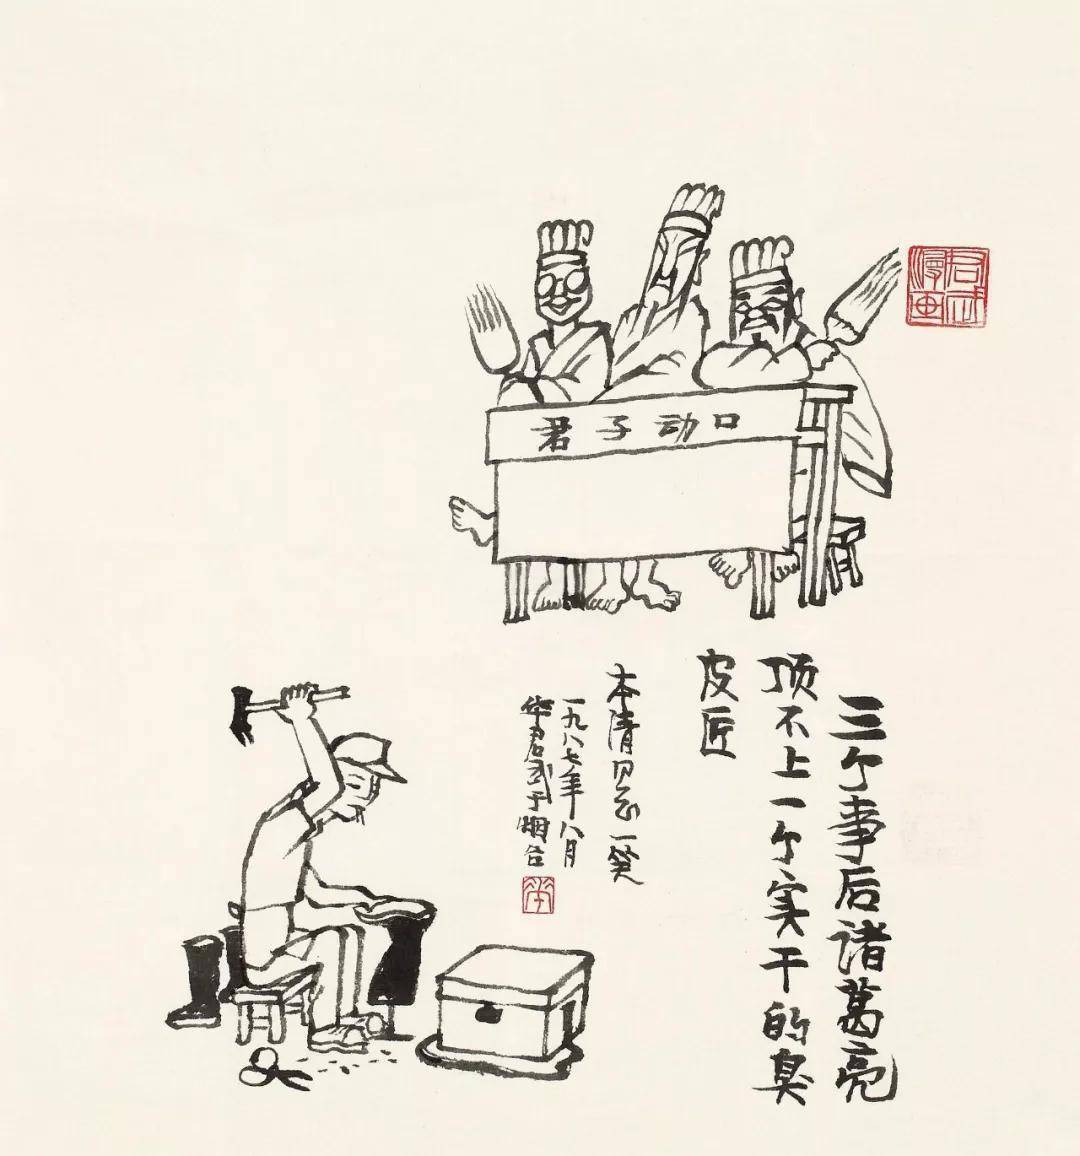 君武漫画
君子动口
三个事后诸葛亮
顶不上一个实干的臭
皮匠
本清同志一笑
一九八七年八月
华君武于烟台
华